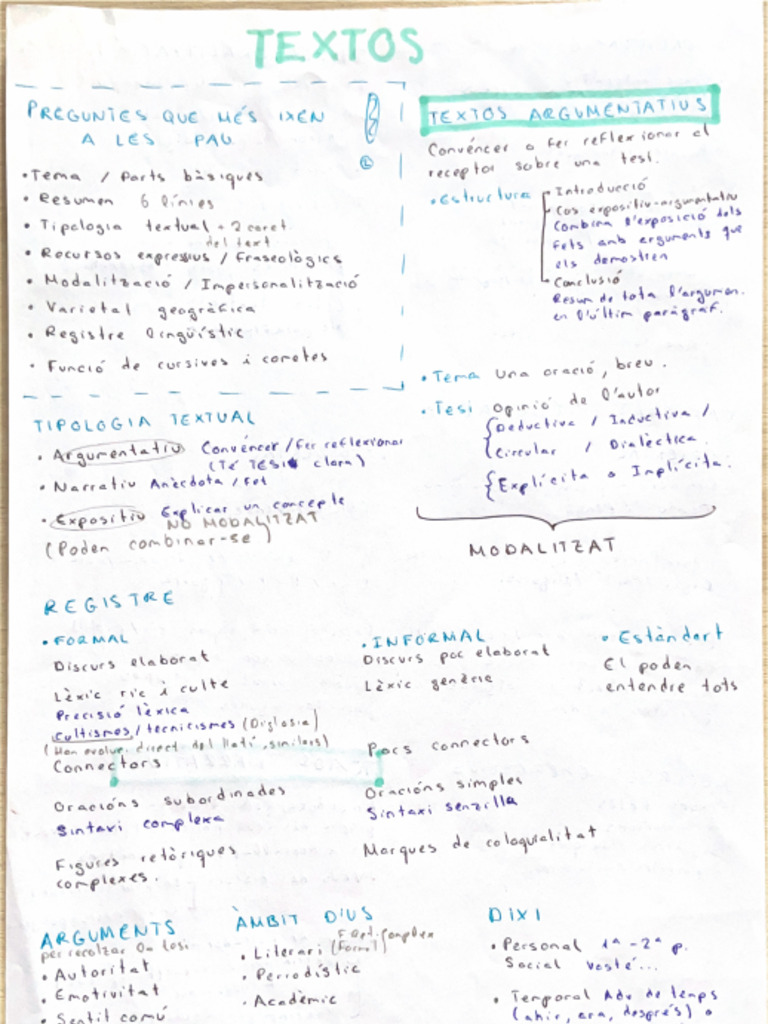 TEXTOS
PREGUNTES QUE MÉS IXEN
A LES PAU
• Tema / Parts bàsiques
• Resumen 6 línies
• Tipologia textual + 2 caract.
del text
• Recursos expressius / Fraseològics
• Modalització / Impersonalització
• Varietat geogràfica
• Registre lingüístic
• Funció de cursives i cometes
TEXTOS ARGUMENTATIUS
Convéncer o fer reflexionar al
receptor sobre una tesi.
• Estructura
Introducció
Cos expositiu-argumentatiu
Combina l'exposició dels
fets amb arguments que
els demostren
Conclusió
Resum de tota l'argumen.
en l'últim paràgraf.
• Tema Una oració, breu.
• Tesi Opinió de l'autor
Deductiva / Inductiva /
Circular / Dialèctica.
Explícita o Implícita.
MODALITZAT
TIPOLOGIA TEXTUAL
• Argumentatiu Convéncer / Fer reflexionar
(TÉ TESI clara)
• Narratiu Anècdota / Fet
• Expositiu Explicar un concepte
NO MODALITZAT
(Poden combinar-se)
REGISTRE
• FORMAL
Discurs elaborat
Lèxic ric i culte
Precisió lèxica
Cultismes / tecnicismes (Diglosia)
(Han evolu. direct. del llatí, similars)
Connectors
Oracións subordinades
Sintaxi complexa
Figures retòriques
complexes.
• INFORMAL
Discurs poc elaborat
Lèxic genèric
Pocs connectors
Oracións simples
Sintaxi senzilla
Marques de coloquialitat
• Estàndart
El poden
entendre tots
ARGUMENTS
per recolzar la tesi
• Autoritat
• Emotivitat
• Sentit comú
ÀMBIT D'US
• Literari (Formal)
• Periodístic
• Acadèmic
DIXI
• Personal 1ª - 2ª p.
Social vosté...
• Temporal Adv de temps
(ahir, ara, després) o